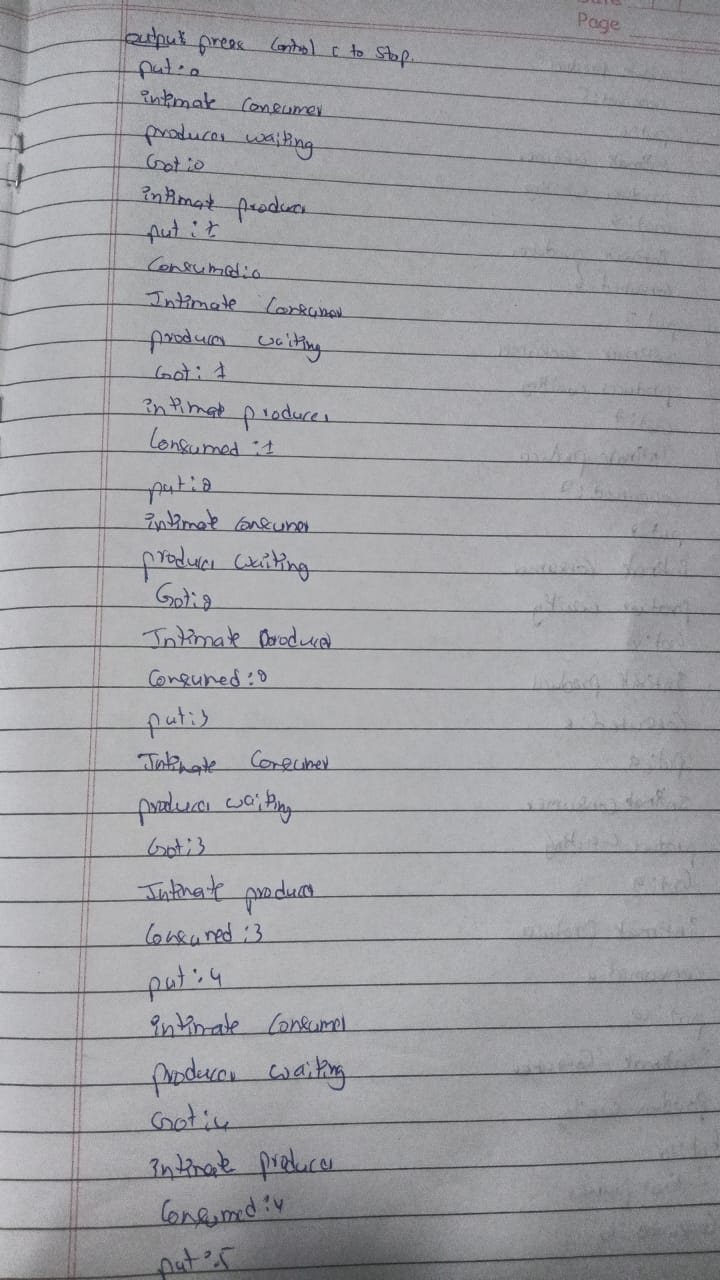 Page
output press Control c to stop.
put:0
intimate Consumer
producer waiting
Got:0
intimate producer
put:1
Consumed:0
Intimate Consumer
producer waiting
Got:1
intimate producer
Consumed:1
put:2
intimate consumer
producer waiting
Got:2
Intimate producer
Consumed:2
put:3
Intimate Consumer
producer waiting
Got:3
Intimate producer
Consumed:3
put:4
intimate Consumer
producer waiting
Got:4
intimate producer
Consumed:4
put:5